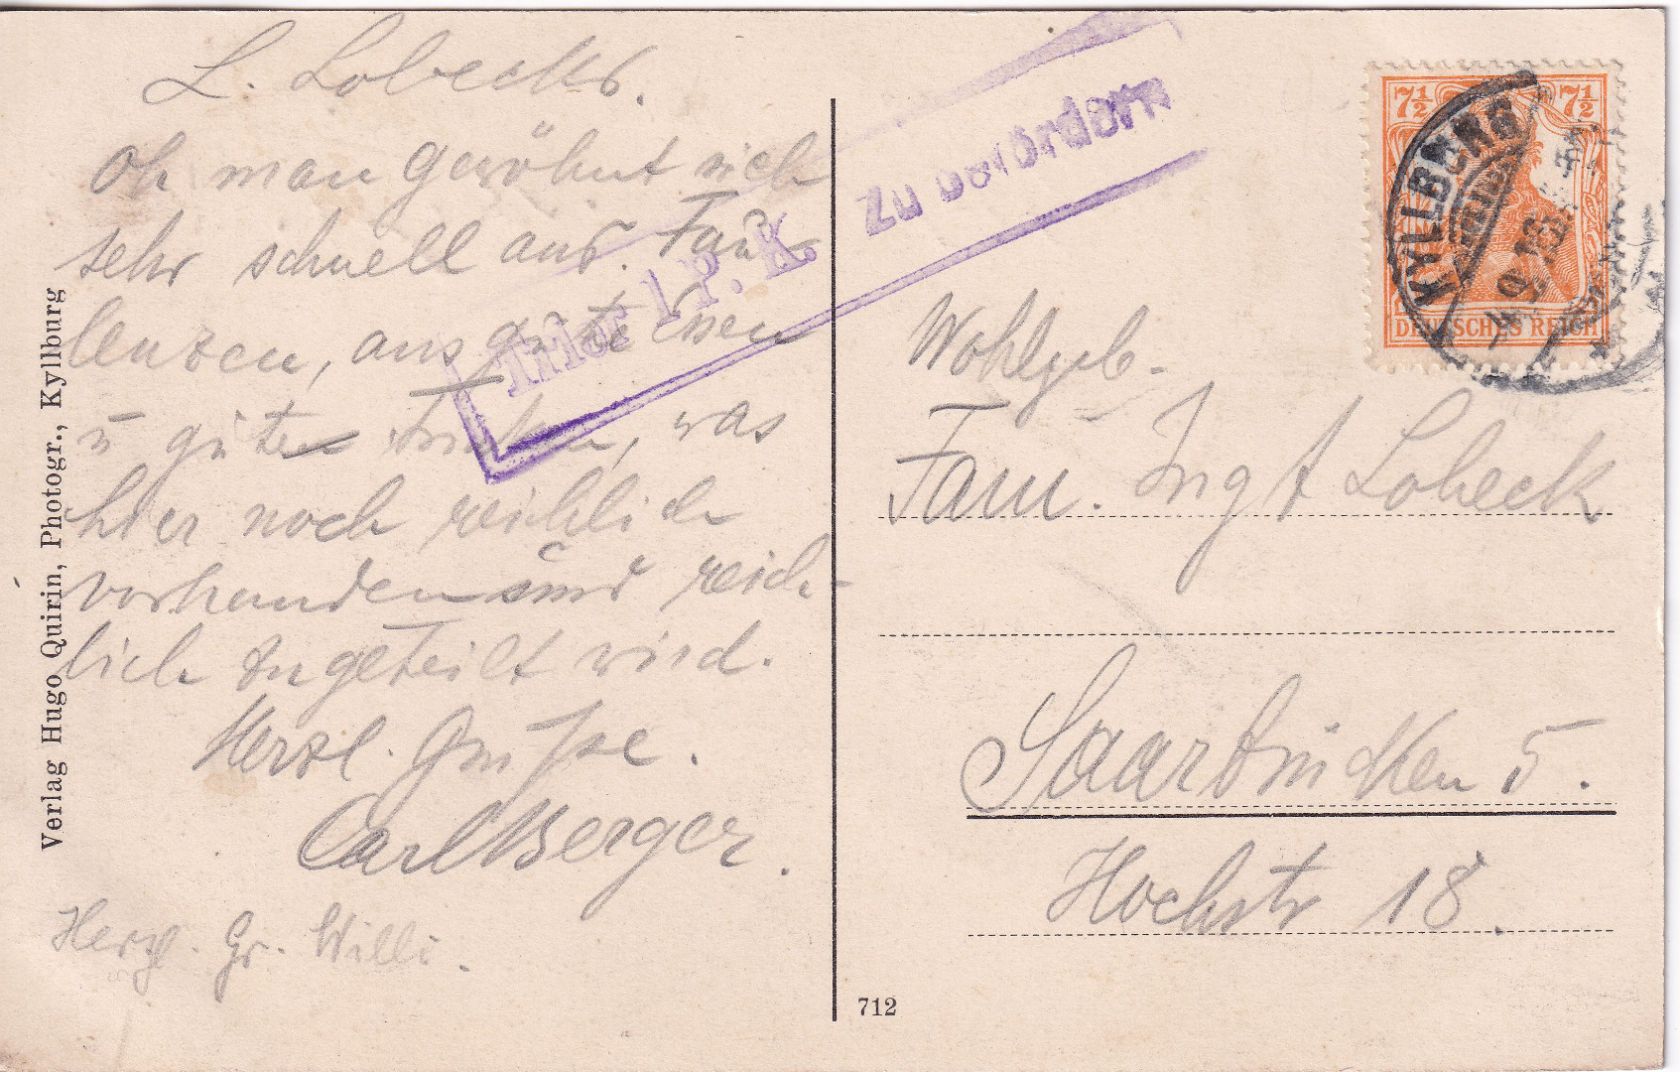 L. Lobecks.
Oh man gewöhnt sich
sehr schnell ans Faul-
lenzen, ans gute Essen
u guten Trinken, was
hier noch reichlich
vorhanden und reich-
lich zugeteilt wird.
Herzl. Grüsse.
Carl Berger.
Herzl. Gr. Willi.
Verlag Hugo Quirin, Photogr., Kyllburg
Trier I P. K.
Zu befördern
7½ 7½
DEUTSCHES REICH
KYLLBURG
Wohlgeb.
Fam. Ing A Lobeck
Saarbrücken 5.
Hochstr 18.
712